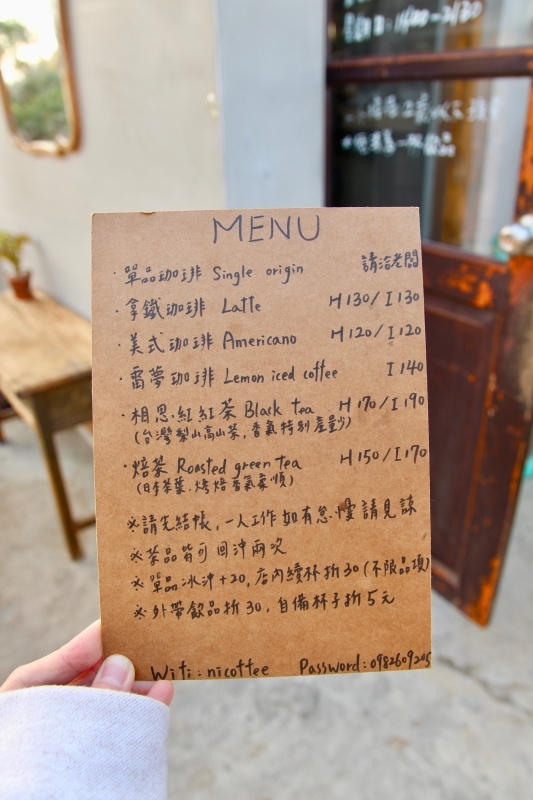 MENU
·單品咖啡 Single origin 請洽老闆
·拿鐵咖啡 Latte H130/I130
·美式咖啡 Americano H120/I120
·雷夢咖啡 Lemon iced coffee I140
·相思.紅紅茶 Black tea H170/I190
(台灣梨山高山茶,香氣特別產量少)
·焙茶 Roasted green tea H150/I170
(日本茶葉.烤焙香氣柔順)
※請先結帳,一人工作如有怠慢請見諒
※茶品皆可回沖兩次
※單品冰沖+20,店內續杯折30(不限品項)
※外帶飲品折30,自備杯子折5元
Wifi:nicoffee Password:0982609245